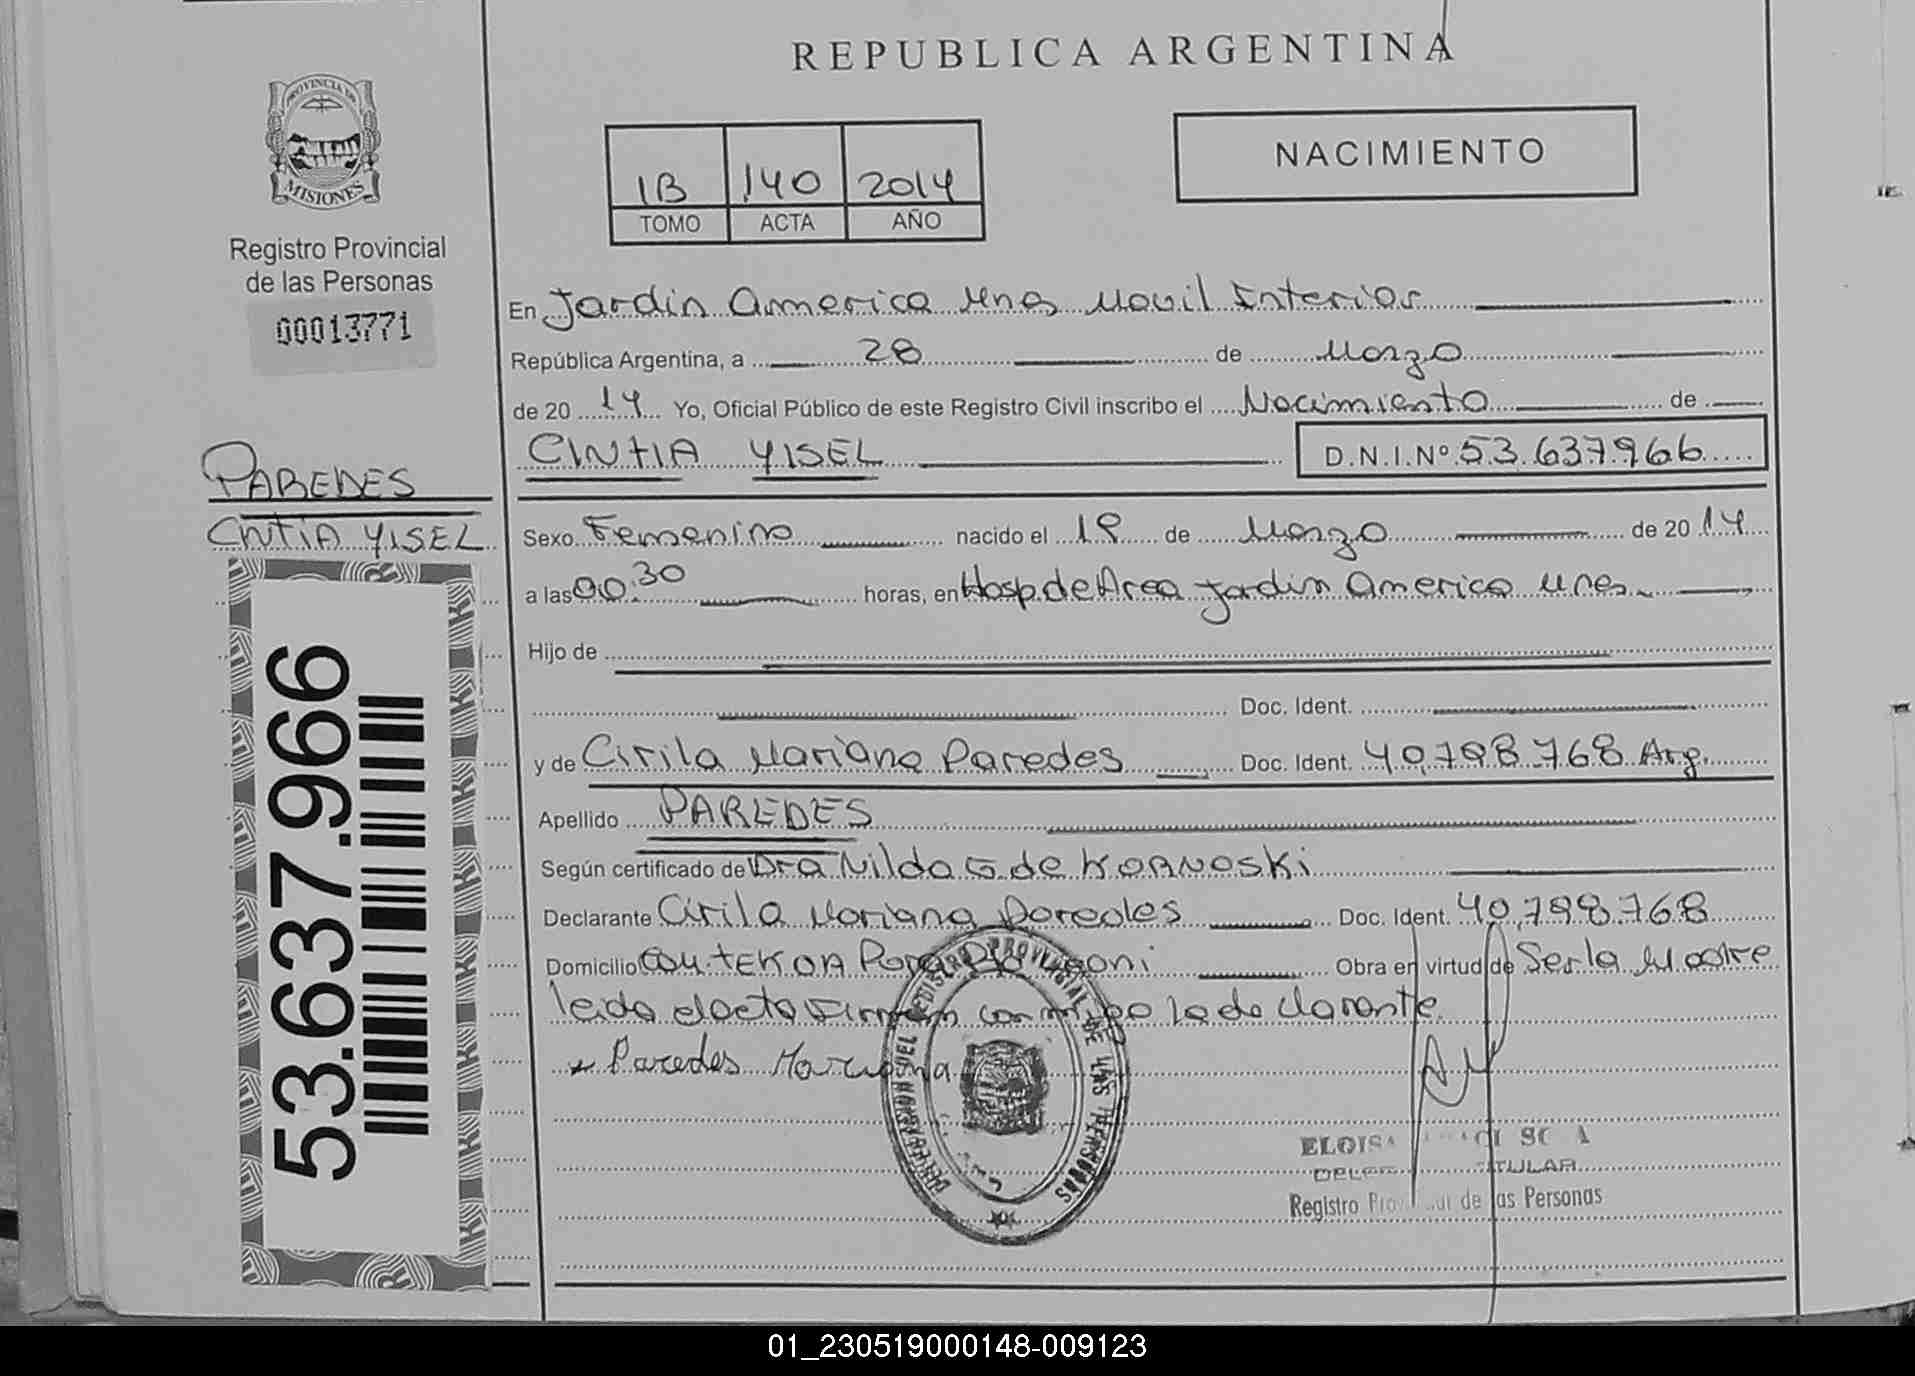 REPUBLICA ARGENTINA
PROVINCIA DE
MISIONES
Registro Provincial
de las Personas
00013771
1B 140 2014
TOMO ACTA AÑO
NACIMIENTO
En Jardin America Mnes Movil Interior
República Argentina, a 28 de Marzo
de 20 14 Yo, Oficial Público de este Registro Civil inscribo el Nacimiento de
CINTIA YISEL D.N.I.Nº 53.637.966
PAREDES
CINTIA YISEL
53.637.966
Sexo Femenino nacido el 19 de Marzo de 20 14
a las 00:30 horas, en Hosp. de Area Jardin America Mnes.
Hijo de
Doc. Ident.
y de Cirila Mariana Paredes Doc. Ident. 40.798.768 Arg.
Apellido PAREDES
Según certificado de Dra Nilda G de KORNOSKI
Declarante Cirila Mariana Paredes Doc. Ident. 40.798.768
Domicilio Obra en virtud de Ser la Madre
leida el acta Firman con migo la declarante.
Paredes Mariana
REGISTRO PROVINCIAL DE LAS PERSONAS
ELOISA
TITULAR
Registro de las Personas
01_230519000148-009123